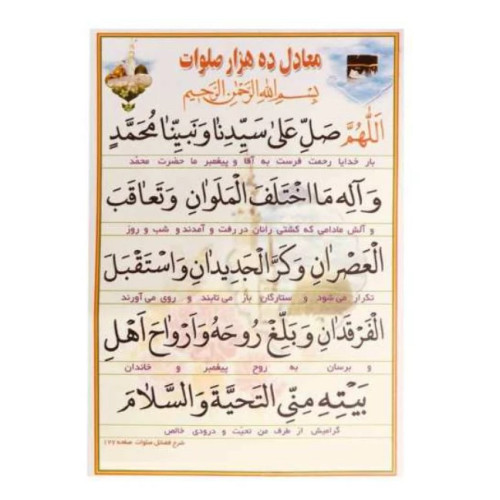 معادل ده هزار صلوات
بسم الله الرحمن الرحیم
اَللّٰهُمَّ صَلِّ عَلىٰ سَيِّدِنٰا وَ نَبِيِّنٰا مُحَمَّدٍ
بار خدایا رحمت فرست به آقا و پیغمبر ما حضرت محمد
وَ آلِهِ مَا اخْتَلَفَ الْمَلَوٰانِ وَ تَعٰاقَبَ
و آلش مادامی که کشتی رانان در رفت و آمدند و شب و روز
الْعَصْرٰانِ وَ كَرَّ الْجَدِيدٰانِ وَ اسْتَقْبَلَ
تکرار می شود و ستارگان باز می تابند و روی می آورند
الْفَرْقَدٰانِ وَ بَلِّغْ رُوحَهُ وَ اَرْوٰاحَ اَهْلِ
و برسان به روح پیغمبر و خاندان
بَيْتِهِ مِنِّي التَّحِيَّةَ وَ السَّلاٰمَ
گرامیش از طرف من تحیت و درودی خالص
شرح فضائل صلوات صفحه